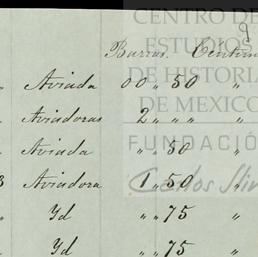 CENTRO DE
9
ESTUDIOS
Barras. Centim
DE HISTORIA
Aviada 00 " 50 "
DE MEXICO
Aviadoras 2 " " " "
FUNDACIÓ
Aviada " 50 "
Carlos Slim
3 Aviadora 1 " 50 "
Yd " " 75 "
Yd " " 75 "